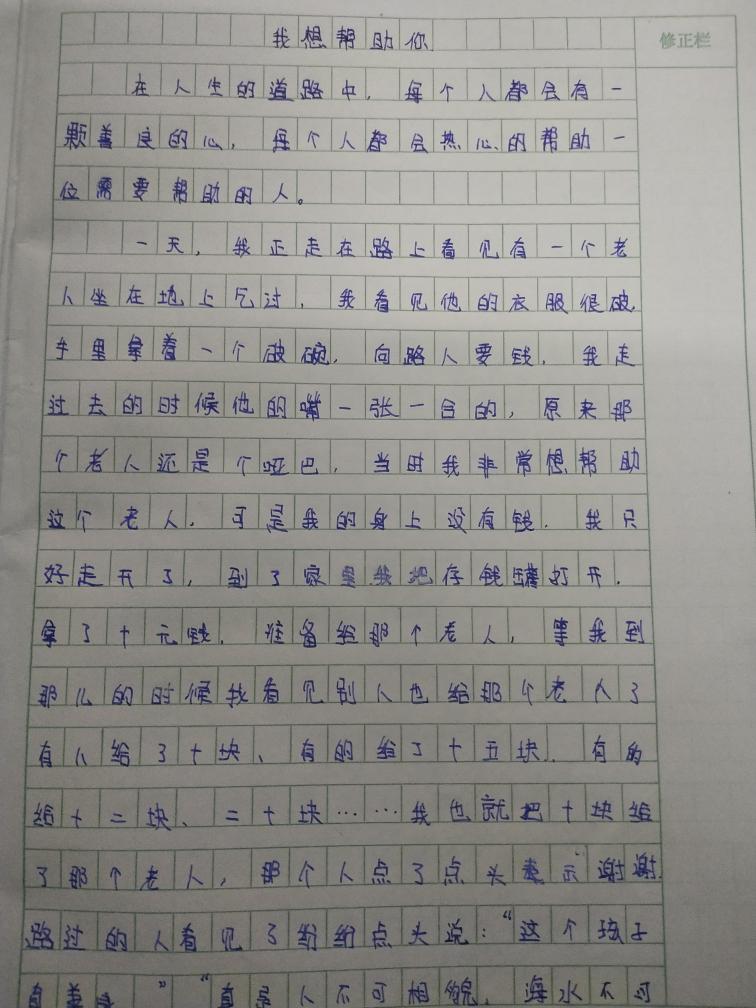 我想帮助你
修正栏
在人生的道路中，每个人都会有一
颗善良的心，每个人都会热心的帮助一
位需要帮助的人。
一天，我正走在路上看见有一个老
人坐在地上乞讨，我看见他的衣服很破，
手里拿着一个破碗，向路人要钱，我走
过去的时候他的嘴一张一合的，原来那
个老人还是个哑巴，当时我非常想帮助
这个老人，可是我的身上没有钱，我只
好走开了，到了家里我把存钱罐打开，
拿了十元钱，准备给那个老人，等我到
那儿的时候我看见别人也给那个老人了
有人给了十块、有的给了十五块、有的
给十二块、二十块……我也就把十块给
了那个老人，那个人点了点头表示谢谢，
路过的人看见了纷纷点头说：“这个孩子
真善良”“真是人不可相貌，海水不可